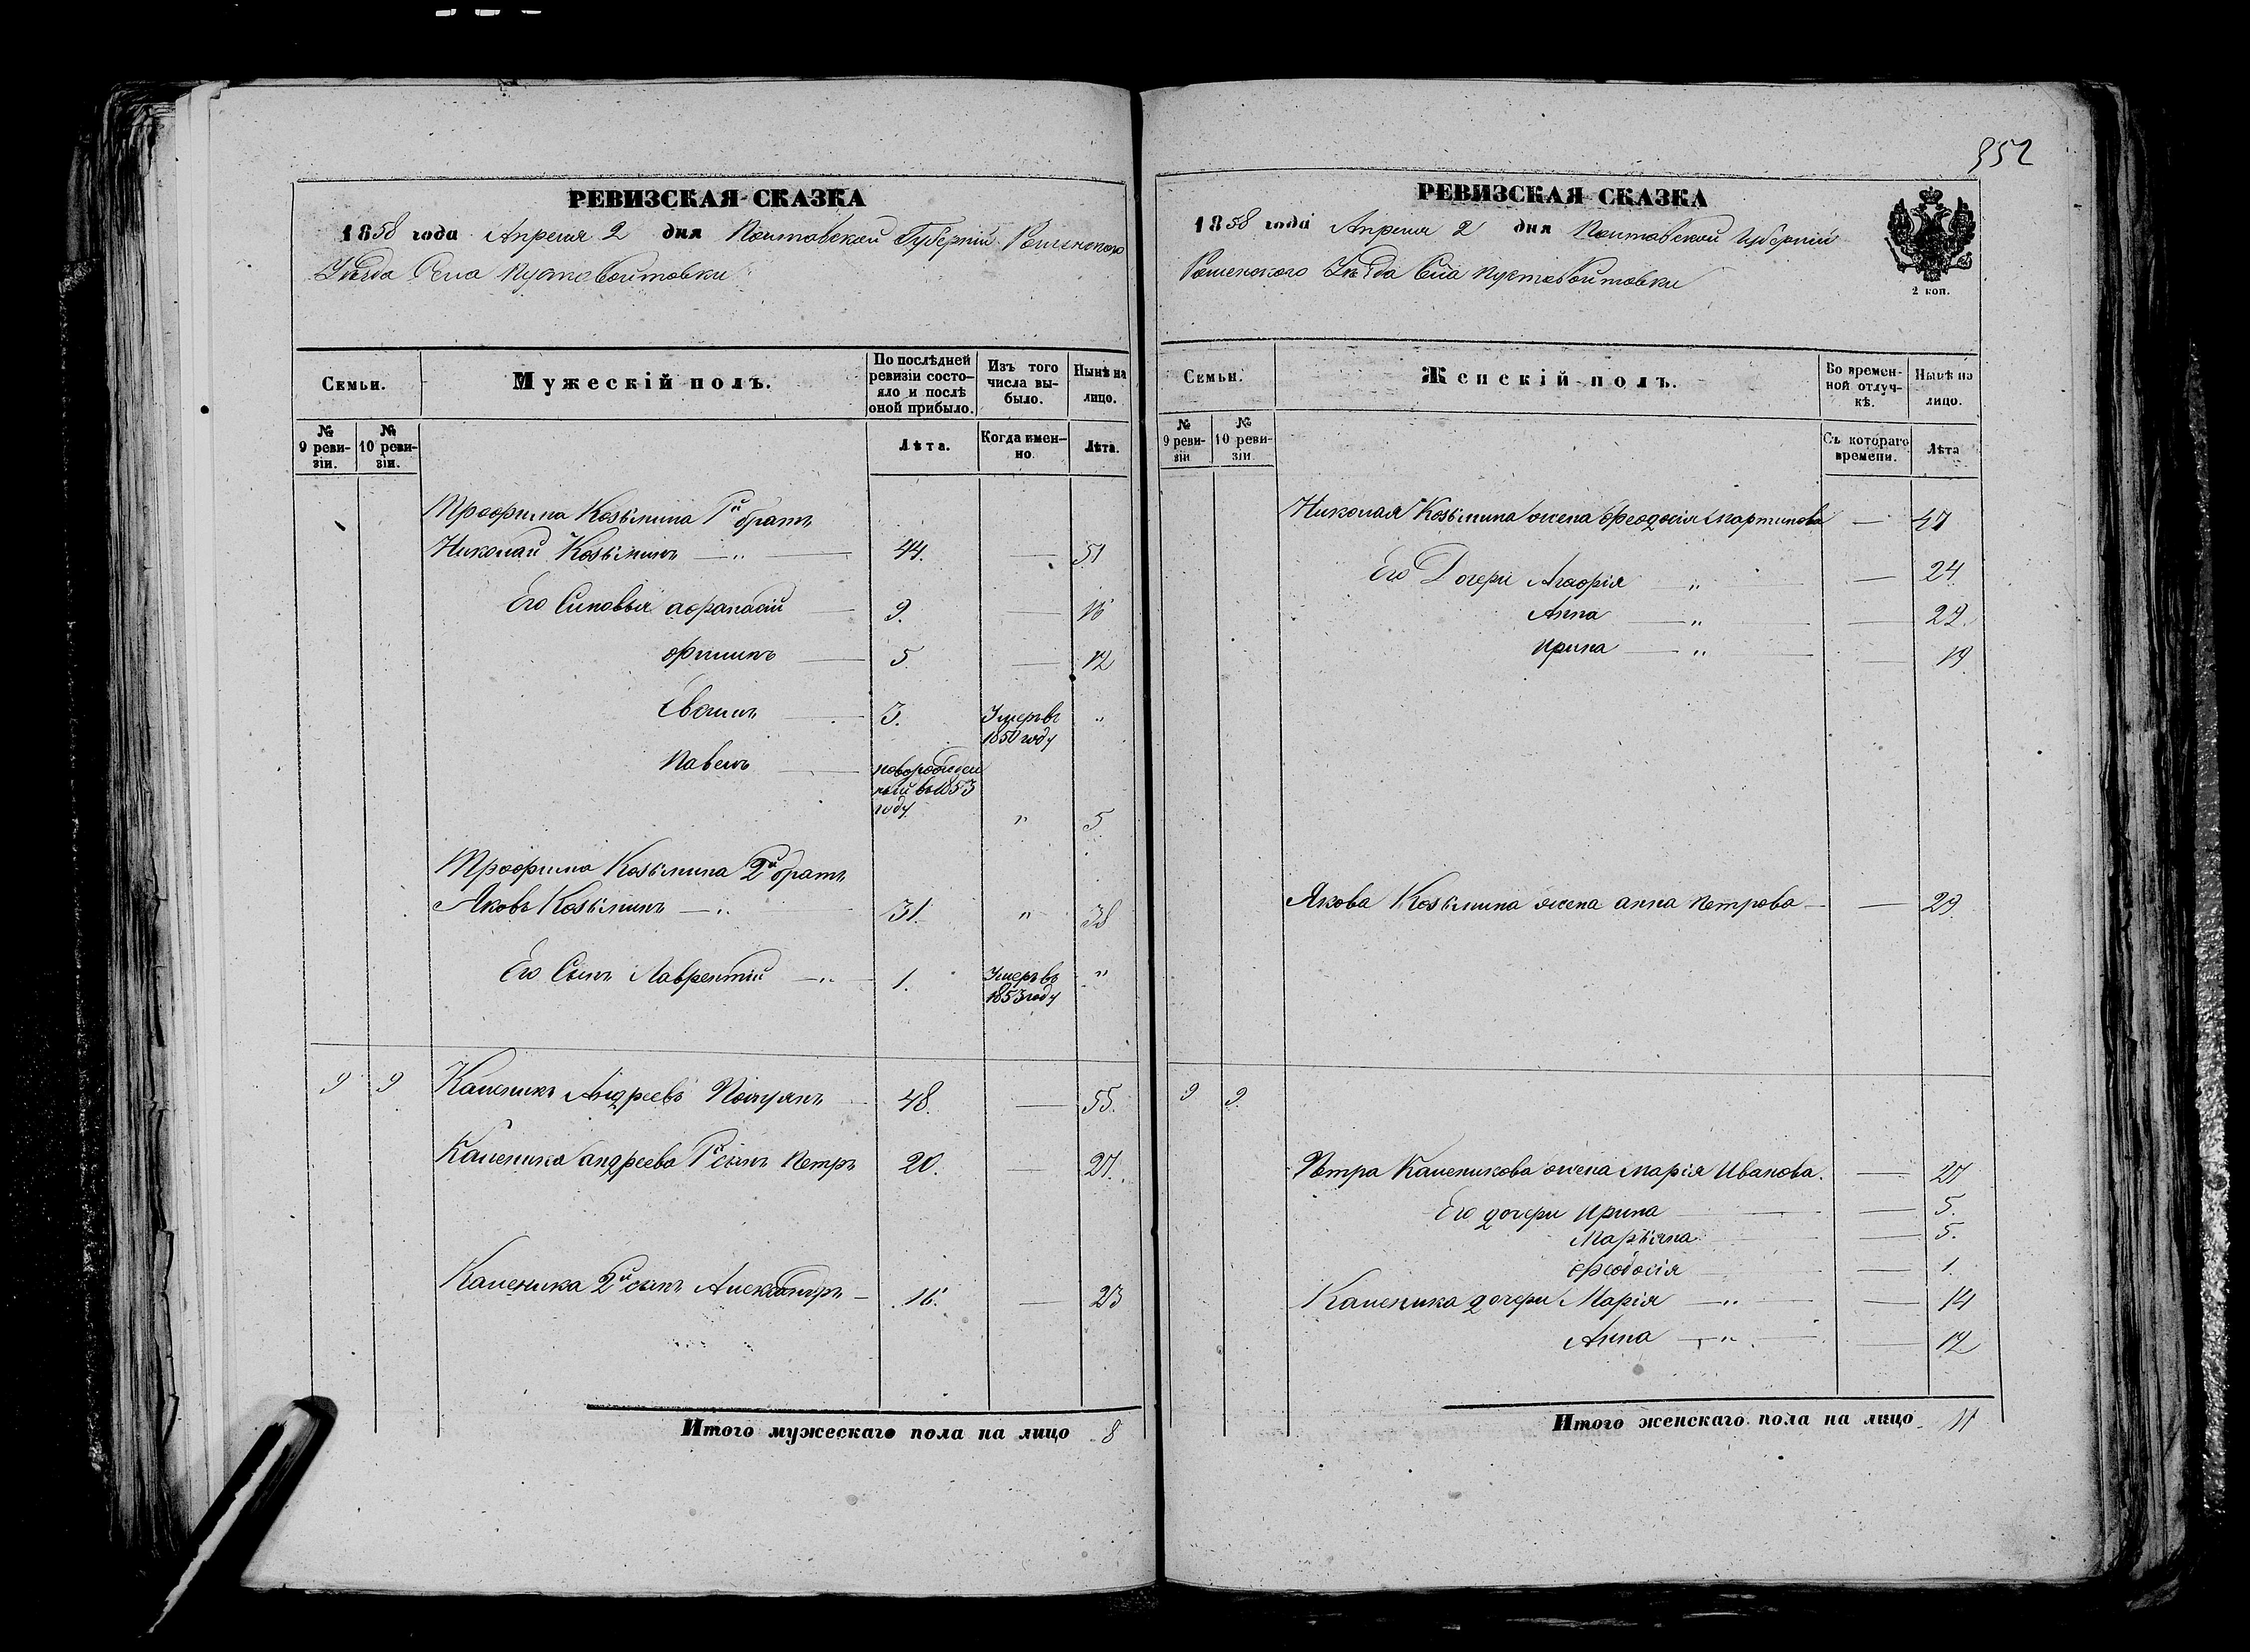 952
РЕВИЗСКАЯ СКАЗКА
1858 года Апреля 2 дня Полтавской Губерніи Роменского
Уѣзда Села Пустовойтовки
Семьи.
Мужескій полъ.
По послѣдней ревизіи состо-
яло и послѣ
оной прибыло.
Изъ того
числа вы-
было.
Нынѣ на
лицо.
№
9 реви-
зіи.
№
10 реви-
зіи.
Лѣта.
Когда имен-
но.
Лѣта.
Трофима Козьмина 1й братъ
Николай Козьминъ — „ — 44. — 51
Его Синовья Афанасій — 9. — 16
Филипъ — 5 — 12
3. Умеръ въ „
1850 году
Павелъ — новорожден
ный въ 1853
году „ 5
Трофима Козьмина 2й братъ
Яковъ Козьминъ — „ 31. „ 38
Его Сынъ Лаврентій — „ 1. Умеръ въ „
1853 году
9 9 Каленикъ Андреевъ 48. — 55.
Каленика Андреева 1й сынъ Петръ 20. — 27.
Каленика 2й сынъ Александръ — 16. — 23
Итого мужескаго пола на лицо 8
РЕВИЗСКАЯ СКАЗКА
1858 года Апреля 2 дня Полтавской Губерніи
Роменского Уѣзда Села Пустовойтовки
2 коп.
Семьи.
Женскій полъ.
Во времен-
ной отлуч-
кѣ.
Нынѣ на
лицо.
№
9 реви-
зіи
№
10 реви-
зіи.
Съ котораго
времени.
Лѣта
Николая Козьмина жена Феодосія Мартинова — 47
Его Дочери Агафія — „ — 24.
Анна — „ — 22.
Ирина — „ — 19
Якова Козьмина жена Анна Петрова — 29.
9 9.
Петра Каленикова жена Марія Иванова. — 27
Его дочери Ирина — 5.
Марьяна — 5.
Феодосія — 1.
Каленика дочери Марія — „ — 14
Анна — „ — 12
Итого женскаго пола на лицо 11